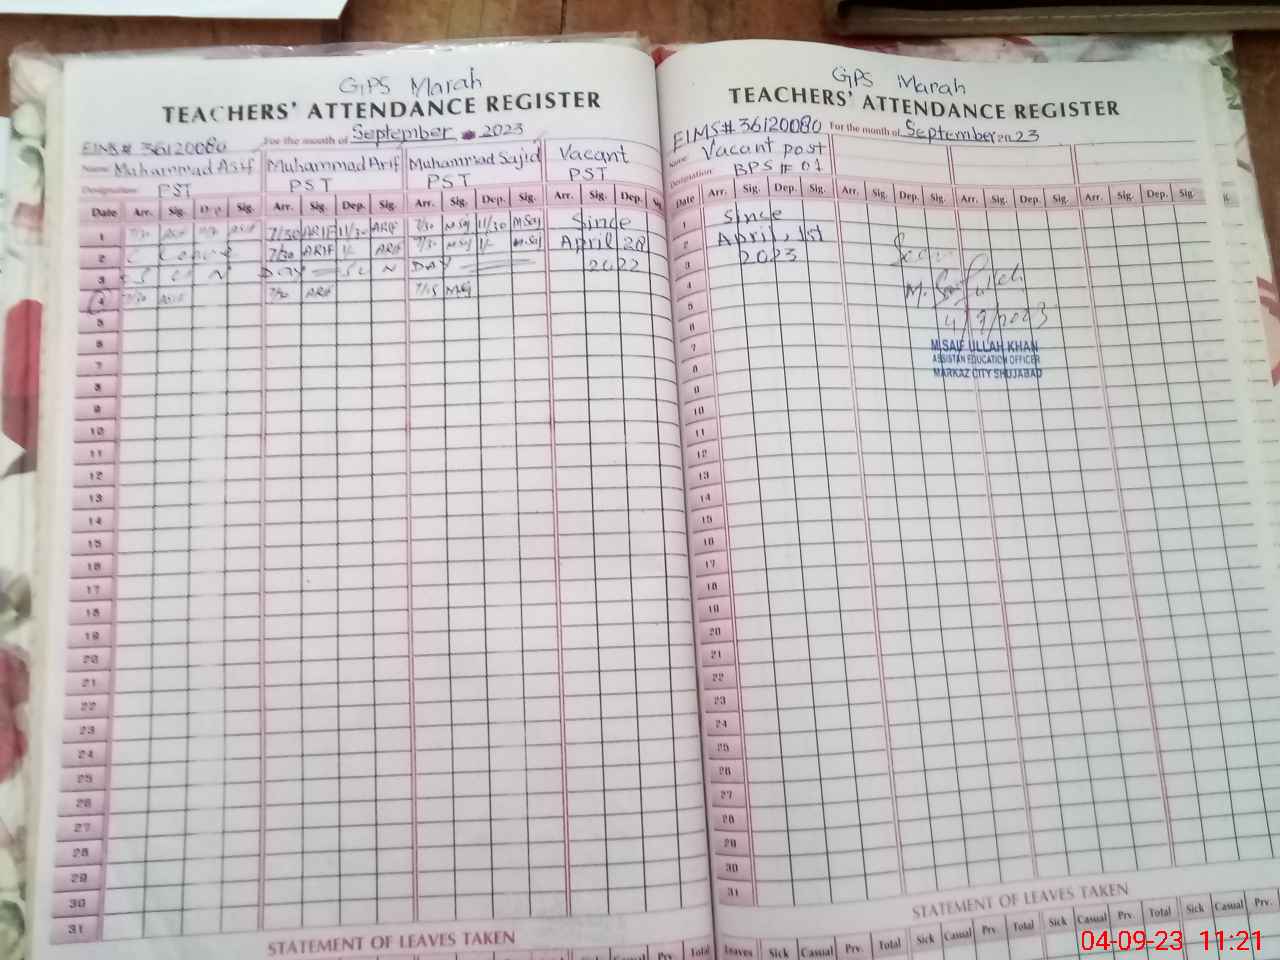 GPS Marah
TEACHERS' ATTENDANCE REGISTER
EIMS# 36120080 For the month of September 2023
Name Muhammad Asif Muhammad Arif Muhammad Sajid Vacant
Designation PST PST PST PST
Date Arr. Sig. Dep. Sig. Arr. Sig. Dep. Sig. Arr. Sig. Dep. Sig. Arr. Sig. Dep. Sig.
1 7/30 ARIF 11/30 ARIF 7/30 MSaj 11/30 MSaj Since
2 7/30 ARIF ARIF 7/30 MSaj April 28
3 S U N DAY S U N DAY 2022
4 7/30 ARIF 7/15
5
6
7
8
9
10
11
12
13
14
15
16
17
18
19
20
21
22
23
24
25
26
27
28
29
30
31
STATEMENT OF LEAVES TAKEN
Casual Prv. Total
GPS Marah
TEACHERS' ATTENDANCE REGISTER
EIMS# 36120080 For the month of September 2023
Name Vacant post
Designation BPS # 01
Date Arr. Sig. Dep. Sig. Arr. Sig. Dep. Sig. Arr. Sig. Dep. Sig. Arr. Sig. Dep. Sig.
1 Since
2 April, 1st
3 2023
4
5
6
7
8
9
10
11
12
13
14
15
16
17
18
19
20
21
22
23
24
25
26
27
28
29
30
31
Seen
4/9/2023
M.SAIF ULLAH KHAN
ASSISTAN EDUCATION OFFICER
MARKAZ CITY SHUJABAD
STATEMENT OF LEAVES TAKEN
Leaves Sick Casual Prv. Total Sick Casual Prv. Total Sick Casual Prv. Total Sick Casual Prv.
04-09-23 11:21